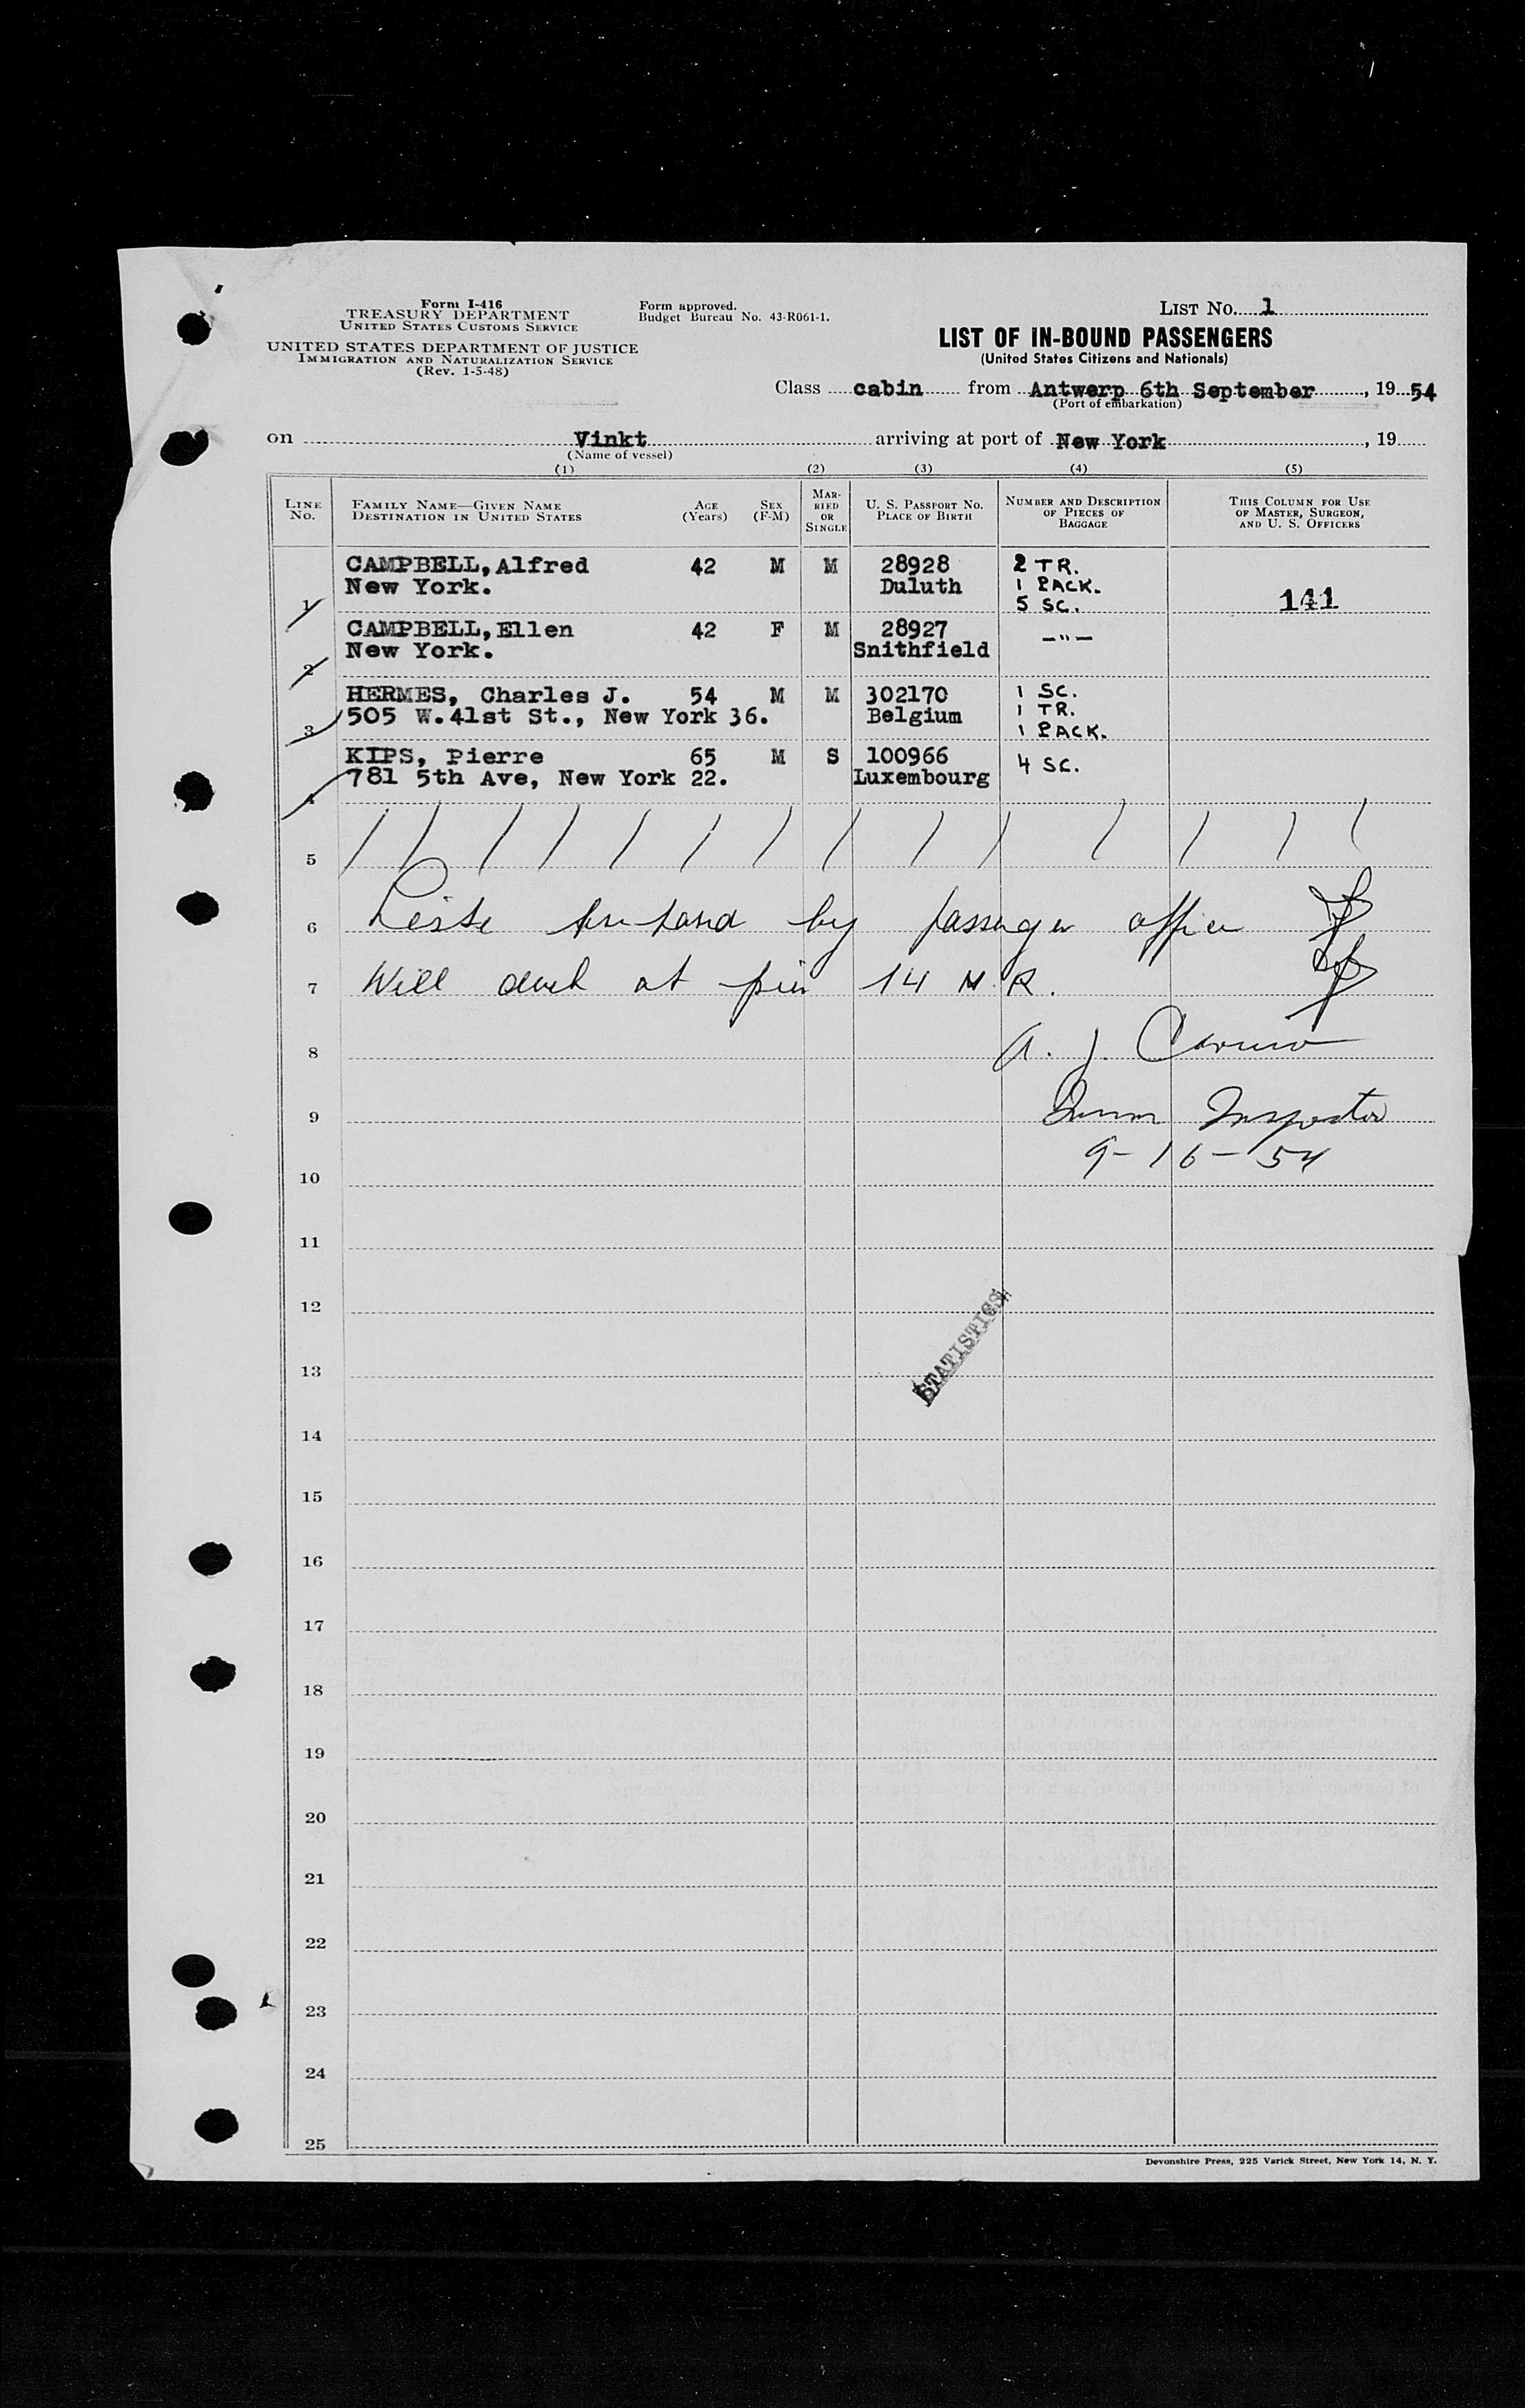 Form I-416
TREASURY DEPARTMENT
UNITED STATES CUSTOMS SERVICE
UNITED STATES DEPARTMENT OF JUSTICE
IMMIGRATION AND NATURALIZATION SERVICE
(Rev. 1-5-48)
Form approved.
Budget Bureau No. 43-R061-1.
LIST No. 1
LIST OF IN-BOUND PASSENGERS
(United States Citizens and Nationals)
Class cabin from Antwerp 6th September, 19 54
(Port of embarkation)
on Vinkt arriving at port of New York, 19
(Name of vessel)
(1) (2) (3) (4) (5)
LINE No. FAMILY NAME—GIVEN NAME DESTINATION IN UNITED STATES AGE (Years) SEX (F-M) MARRIED OR SINGLE U. S. PASSPORT No. PLACE OF BIRTH NUMBER AND DESCRIPTION OF PIECES OF BAGGAGE THIS COLUMN FOR USE OF MASTER, SURGEON, AND U. S. OFFICERS
CAMPBELL, Alfred 42 M M 28928 2 TR.
New York. Duluth 1 PACK.
1 5 SC. 141
CAMPBELL, Ellen 42 F M 28927 -"-
New York. Snithfield
2
HERMES, Charles J. 54 M M 302170 1 SC.
505 W.41st St., New York 36. Belgium 1 TR.
3 1 PACK.
KIPS, Pierre 65 M S 100966 4 SC.
781 5th Ave, New York 22. Luxembourg
4
5
6 by passenger office
7 Will dock at pier 14 N.R.
8 A. J. Caruso
9 Imm Inspector
9-16-54
10
11
12
STATISTICS
13
14
15
16
17
18
19
20
21
22
23
24
25
Devonshire Press, 225 Varick Street, New York 14, N. Y.